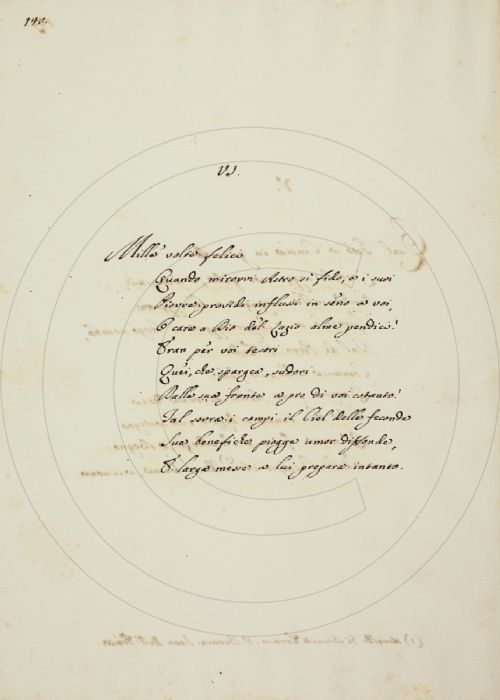 140.
VI.
Mille volte felici
Quando mirovvi Astro sì fido, e i suoi
Piovve providi influssi in seno a voi,
O care a Dio del Lazio alme pendici!
Eran per voi tesori
Quei, che spargea, sudori
Dalla sua fronte a pro di voi cotanto!
Tal sovra i campi il Ciel delle feconde
Sue benefiche piogge umor diffonde,
E larga messe a lui prepara intanto.